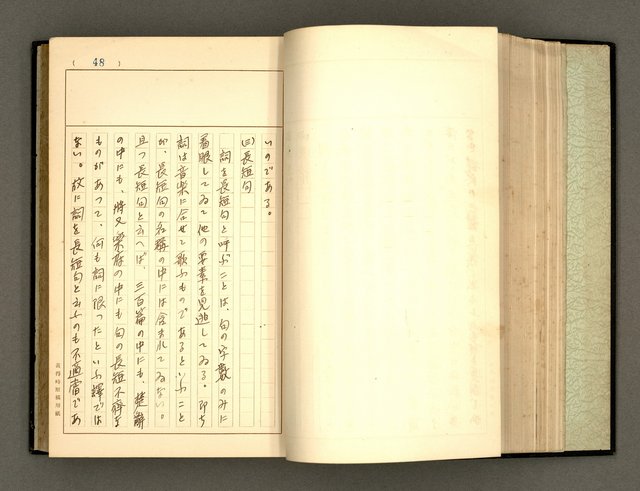 ( 48 )
いのである。
㈢長短句
詞を長短句と呼ぶことは、句の字数のみに
着眼してゐて他の要素を見逃してゐる。即ち
詞は音楽に合せて歌ふものであるといふこと
が、長短句の名稱の中には含まれてゐない。
且つ長短句と云へば、三百篇の中にも、楚辞
の中にも、将又楽府の中にも句の長短不齊な
ものがあつて、何も詞に限つたといふ譯では
ない。故に詞を長短句と云ふのも不適當であ
黃得時原稿用紙